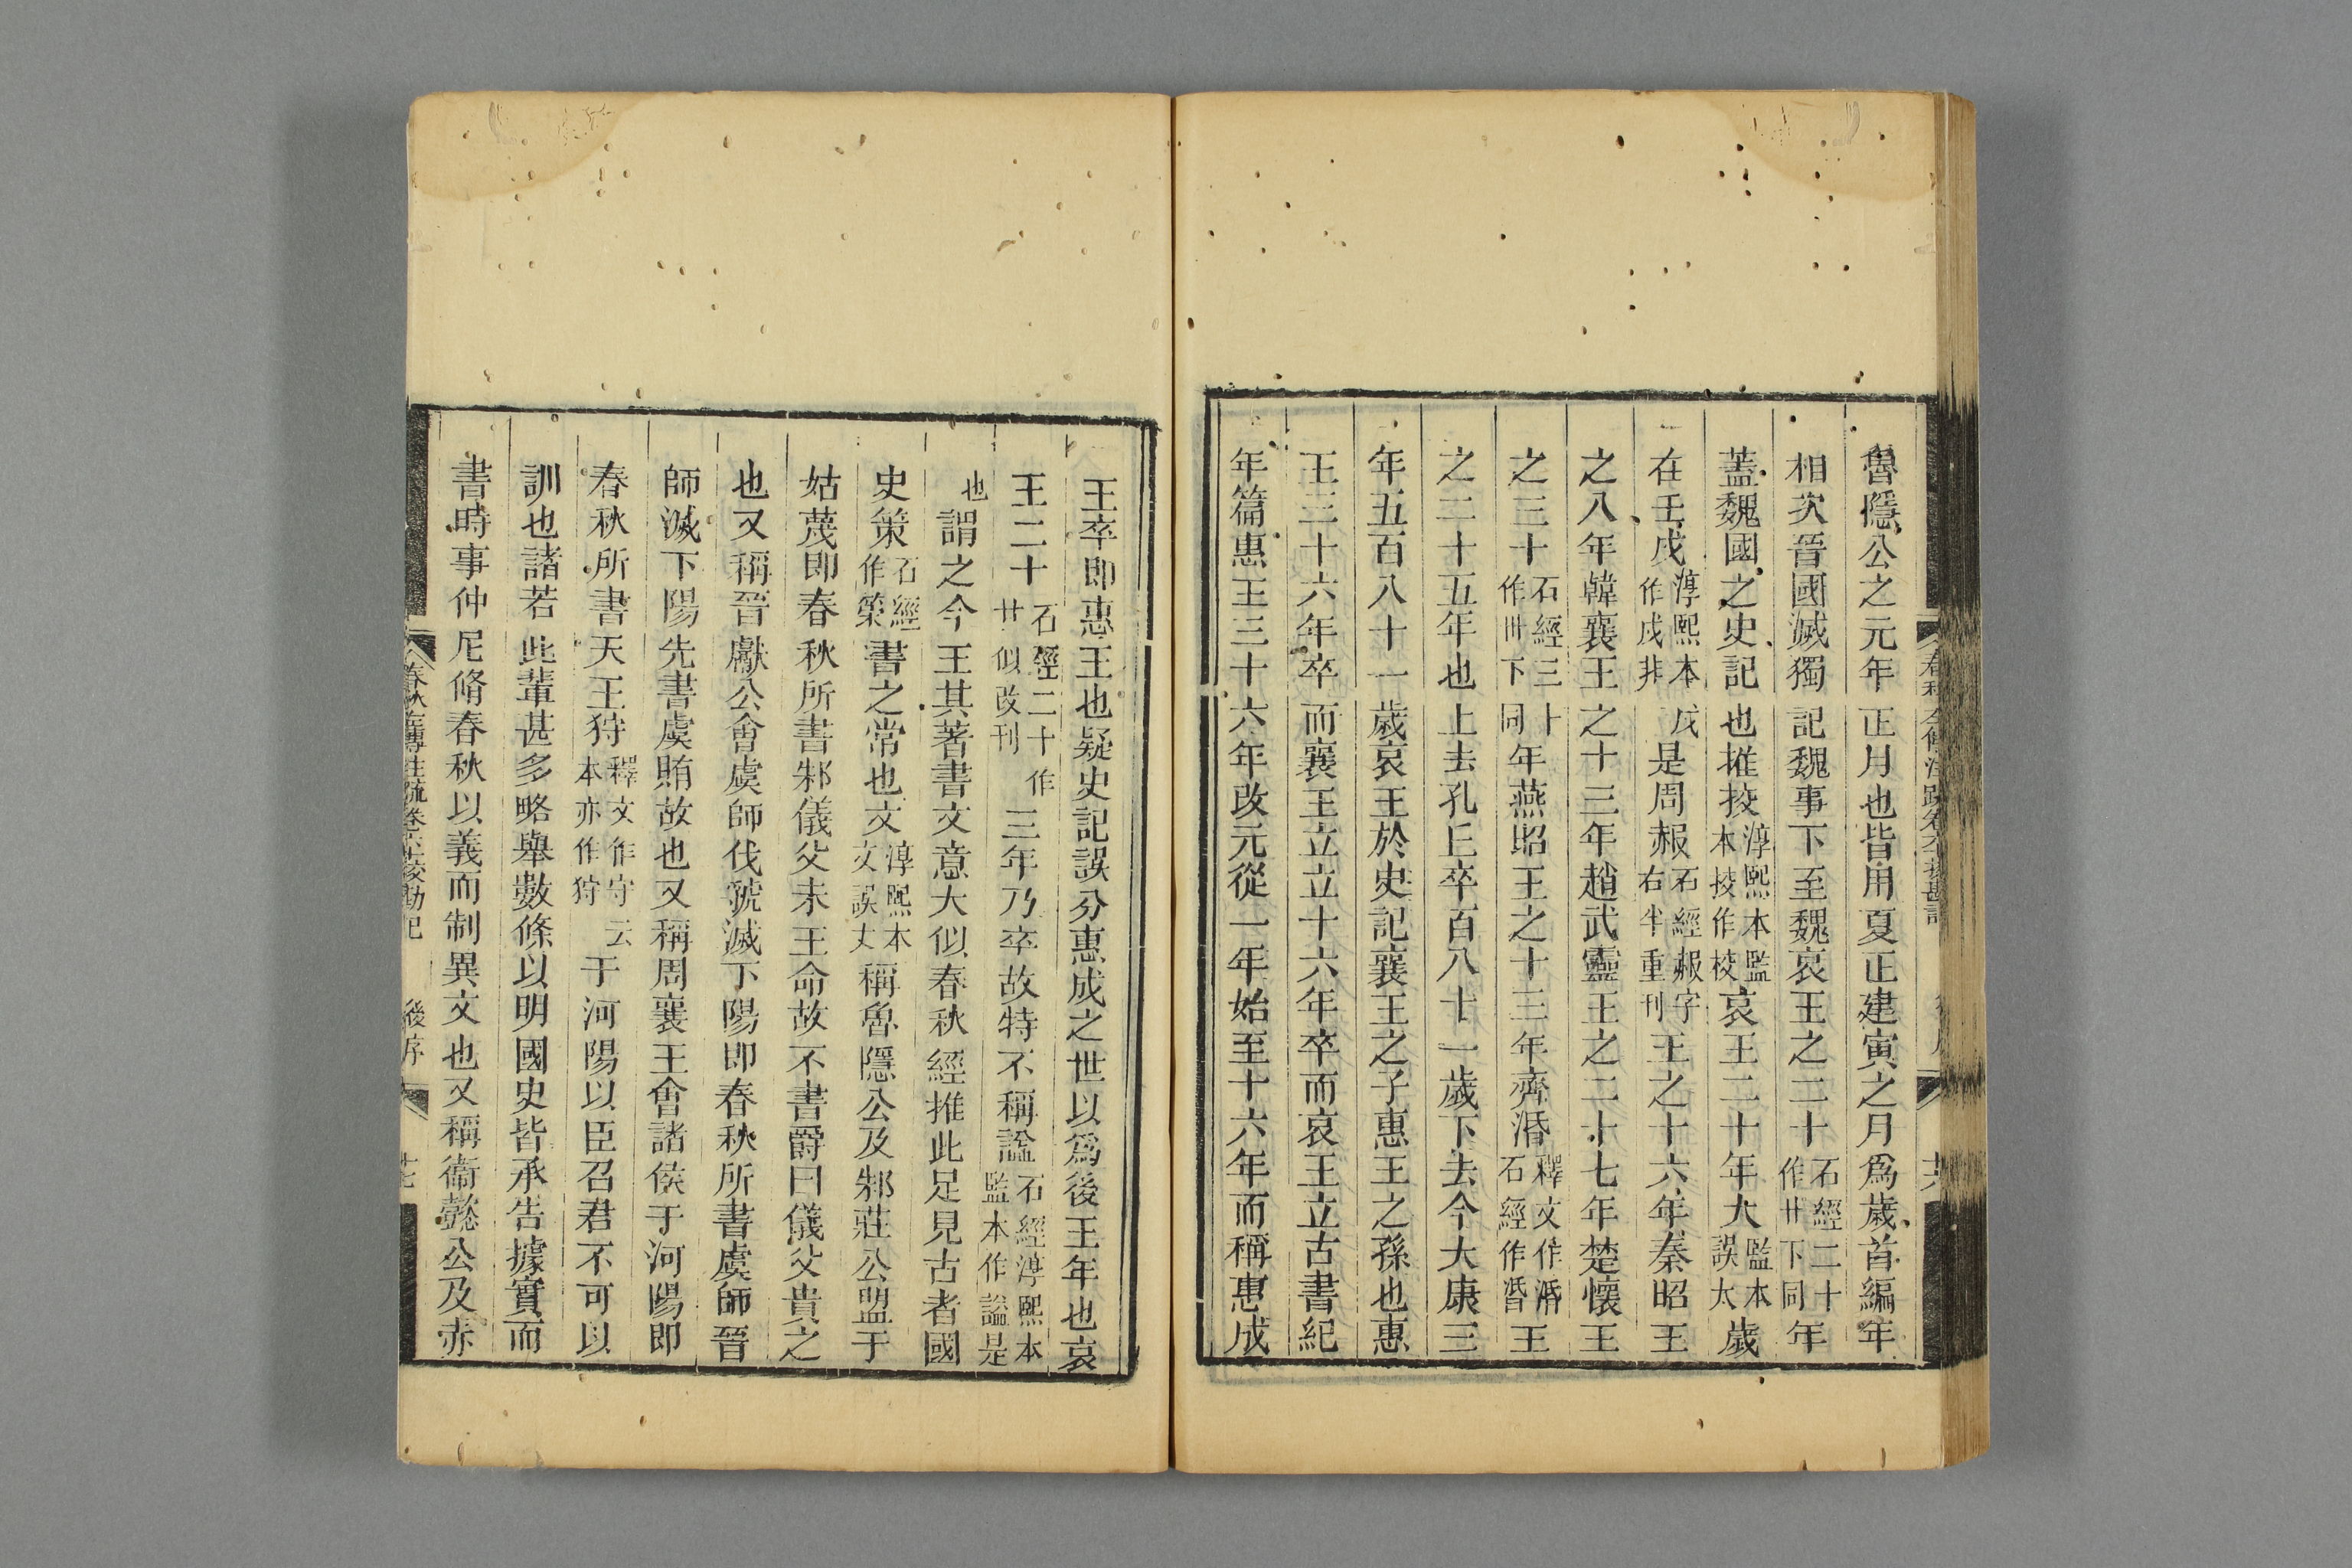 魯隱公之元年正月也皆用夏正建寅之月爲歲首編年
相次晉國滅獨記魏事下至魏哀王之二十石經二十作廿下同年
蓋魏國之史記也推挍淳熙本監本挍作校哀王二十年大監本誤太歲
在壬戌淳熙本戌作戍非是周赧石經赧字右半重刊王之十六年秦昭王
之八年韓襄王之十三年趙武靈王之二十七年楚懷王
之三十石經三十作卅下同年燕昭王之十三年齊湣釋文作湣石經作湣王
之二十五年也上去孔丘卒百八十一歲下去今大康三
年五百八十一歲哀王於史記襄王之子惠王之孫也惠
王三十六年卒而襄王立立十六年卒而哀王立古書紀
年篇惠王三十六年改元從一年始至十六年而稱惠成
王卒即惠王也疑史記誤分惠成之世以爲後王年也哀
王二十石經二十作廿似改刊三年乃卒故特不稱諡石經淳熙本監本作謚是
也謂之今王其著書文意大似春秋經推此足見古者國
史策石經作筞書之常也文淳熙本文誤丈稱魯隱公及邾莊公盟于
姑蔑即春秋所書邾儀父未王命故不書爵曰儀父貴之
也又稱晉獻公會虞師伐虢滅下陽即春秋所書虞師晉
師滅下陽先書虞賄故也又稱周襄王會諸侯于河陽即
春秋所書天王狩釋文作守云本亦作狩于河陽以臣召君不可以
訓也諸若此輩甚多略舉數條以明國史皆承告據實而
書時事仲尼脩春秋以義而制異文也又稱衞懿公及赤
春秋左傳注疏卷六十挍勘記 後序 十七